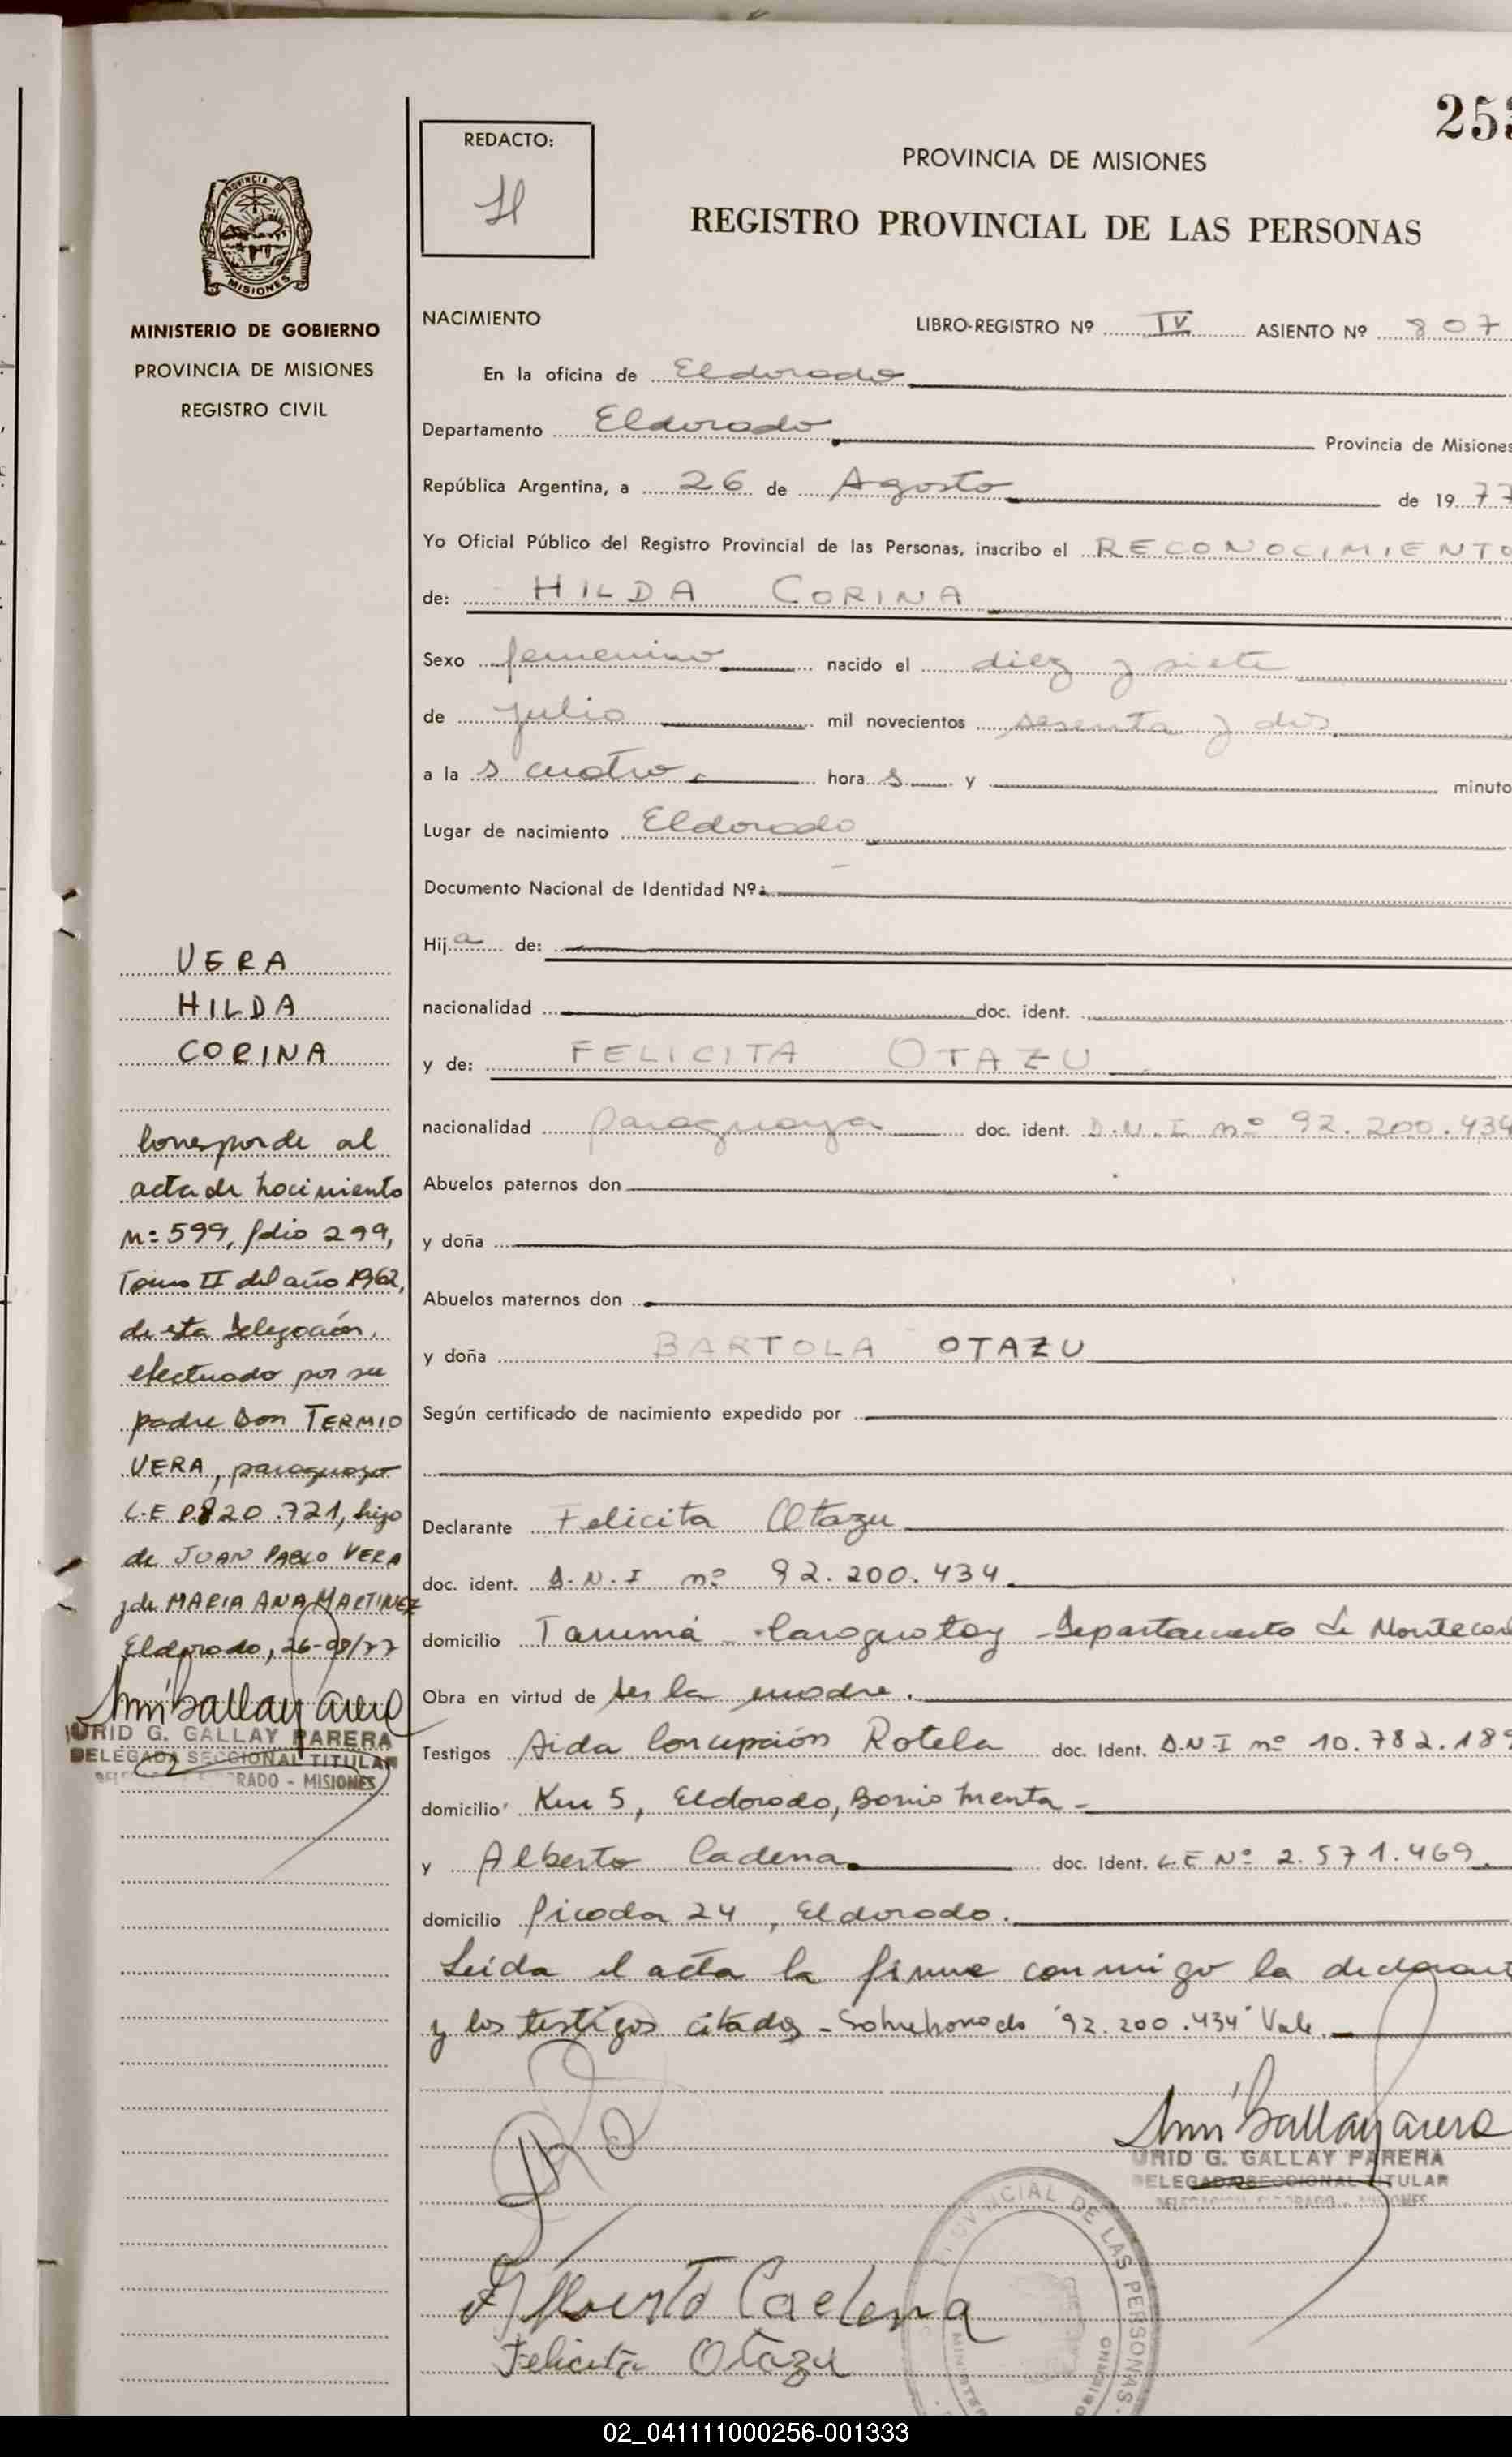 253
REDACTO:
H
PROVINCIA DE MISIONES
REGISTRO PROVINCIAL DE LAS PERSONAS
PROVINCIA DE
MISIONES
MINISTERIO DE GOBIERNO
PROVINCIA DE MISIONES
REGISTRO CIVIL
NACIMIENTO
LIBRO-REGISTRO Nº IV ASIENTO Nº 807
En la oficina de Eldorado
Departamento Eldorado Provincia de Misiones
República Argentina, a 26 de Agosto de 1977
Yo Oficial Público del Registro Provincial de las Personas, inscribo el RECONOCIMIENTO
de: HILDA CORINA
Sexo femenino nacido el diez y siete
de julio mil novecientos sesenta y dos
a la s cuatro hora s y minuto
Lugar de nacimiento Eldorado
Documento Nacional de Identidad Nº:
Hij a de:
nacionalidad doc. ident.
y de: FELICITA OTAZU
nacionalidad paraguaya doc. ident. D.N.I nº 92.200.434
Abuelos paternos don
y doña
Abuelos maternos don
y doña BARTOLA OTAZU
Según certificado de nacimiento expedido por
Declarante Felicita Otazu
doc. ident. D.N.I nº 92.200.434
domicilio Tarumá - Caraguatay - Departamento de Montecar
Obra en virtud de ser la madre.
Testigos Aida Concepción Rotela doc. Ident. D.N.I nº 10.782.189
domicilio Km 5, Eldorado, Barrio Menta -
y Alberto Cadena doc. Ident. L.E Nº 2.571.469.
domicilio Picada 24, Eldorado.
Leida el acta la firma conmigo la declarant
y los testigos citados - Sobreborrado "92.200.434" Vale.
URID G. GALLAY PARERA
DELEGADA SECCIONAL TITULAR
DELEGACION ELDORADO - MISIONES
Alberto Cadena
Felicita Otazu
VERA
HILDA
CORINA
Corresponde al
acta de nacimiento
Nº 599, folio 299,
Tomo II del año 1962,
de esta Delegación,
efectuado por su
padre Don TERMIO
VERA, paraguayo
L.E 8820.721, hijo
de JUAN PABLO VERA
y de MARIA ANA MARTINEZ
Eldorado, 26-08/77
URID G. GALLAY PARERA
DELEGADA SECCIONAL TITULAR
RADO - MISIONES
PROVINCIAL DE LAS PERSONAS
02_041111000256-001333